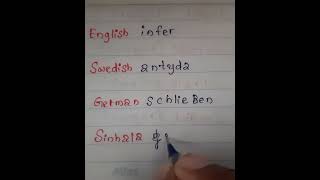 English infer
Swedish antyda
German Schließen
Sinhala